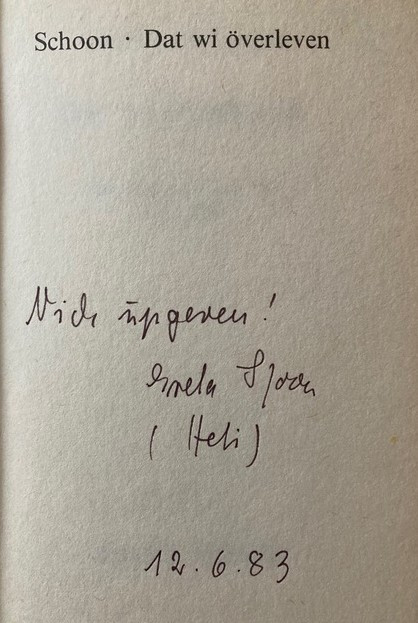 Schoon · Dat wi överleven
Nich upgeven!
Greta Schoon
(Heli)
12.6.83